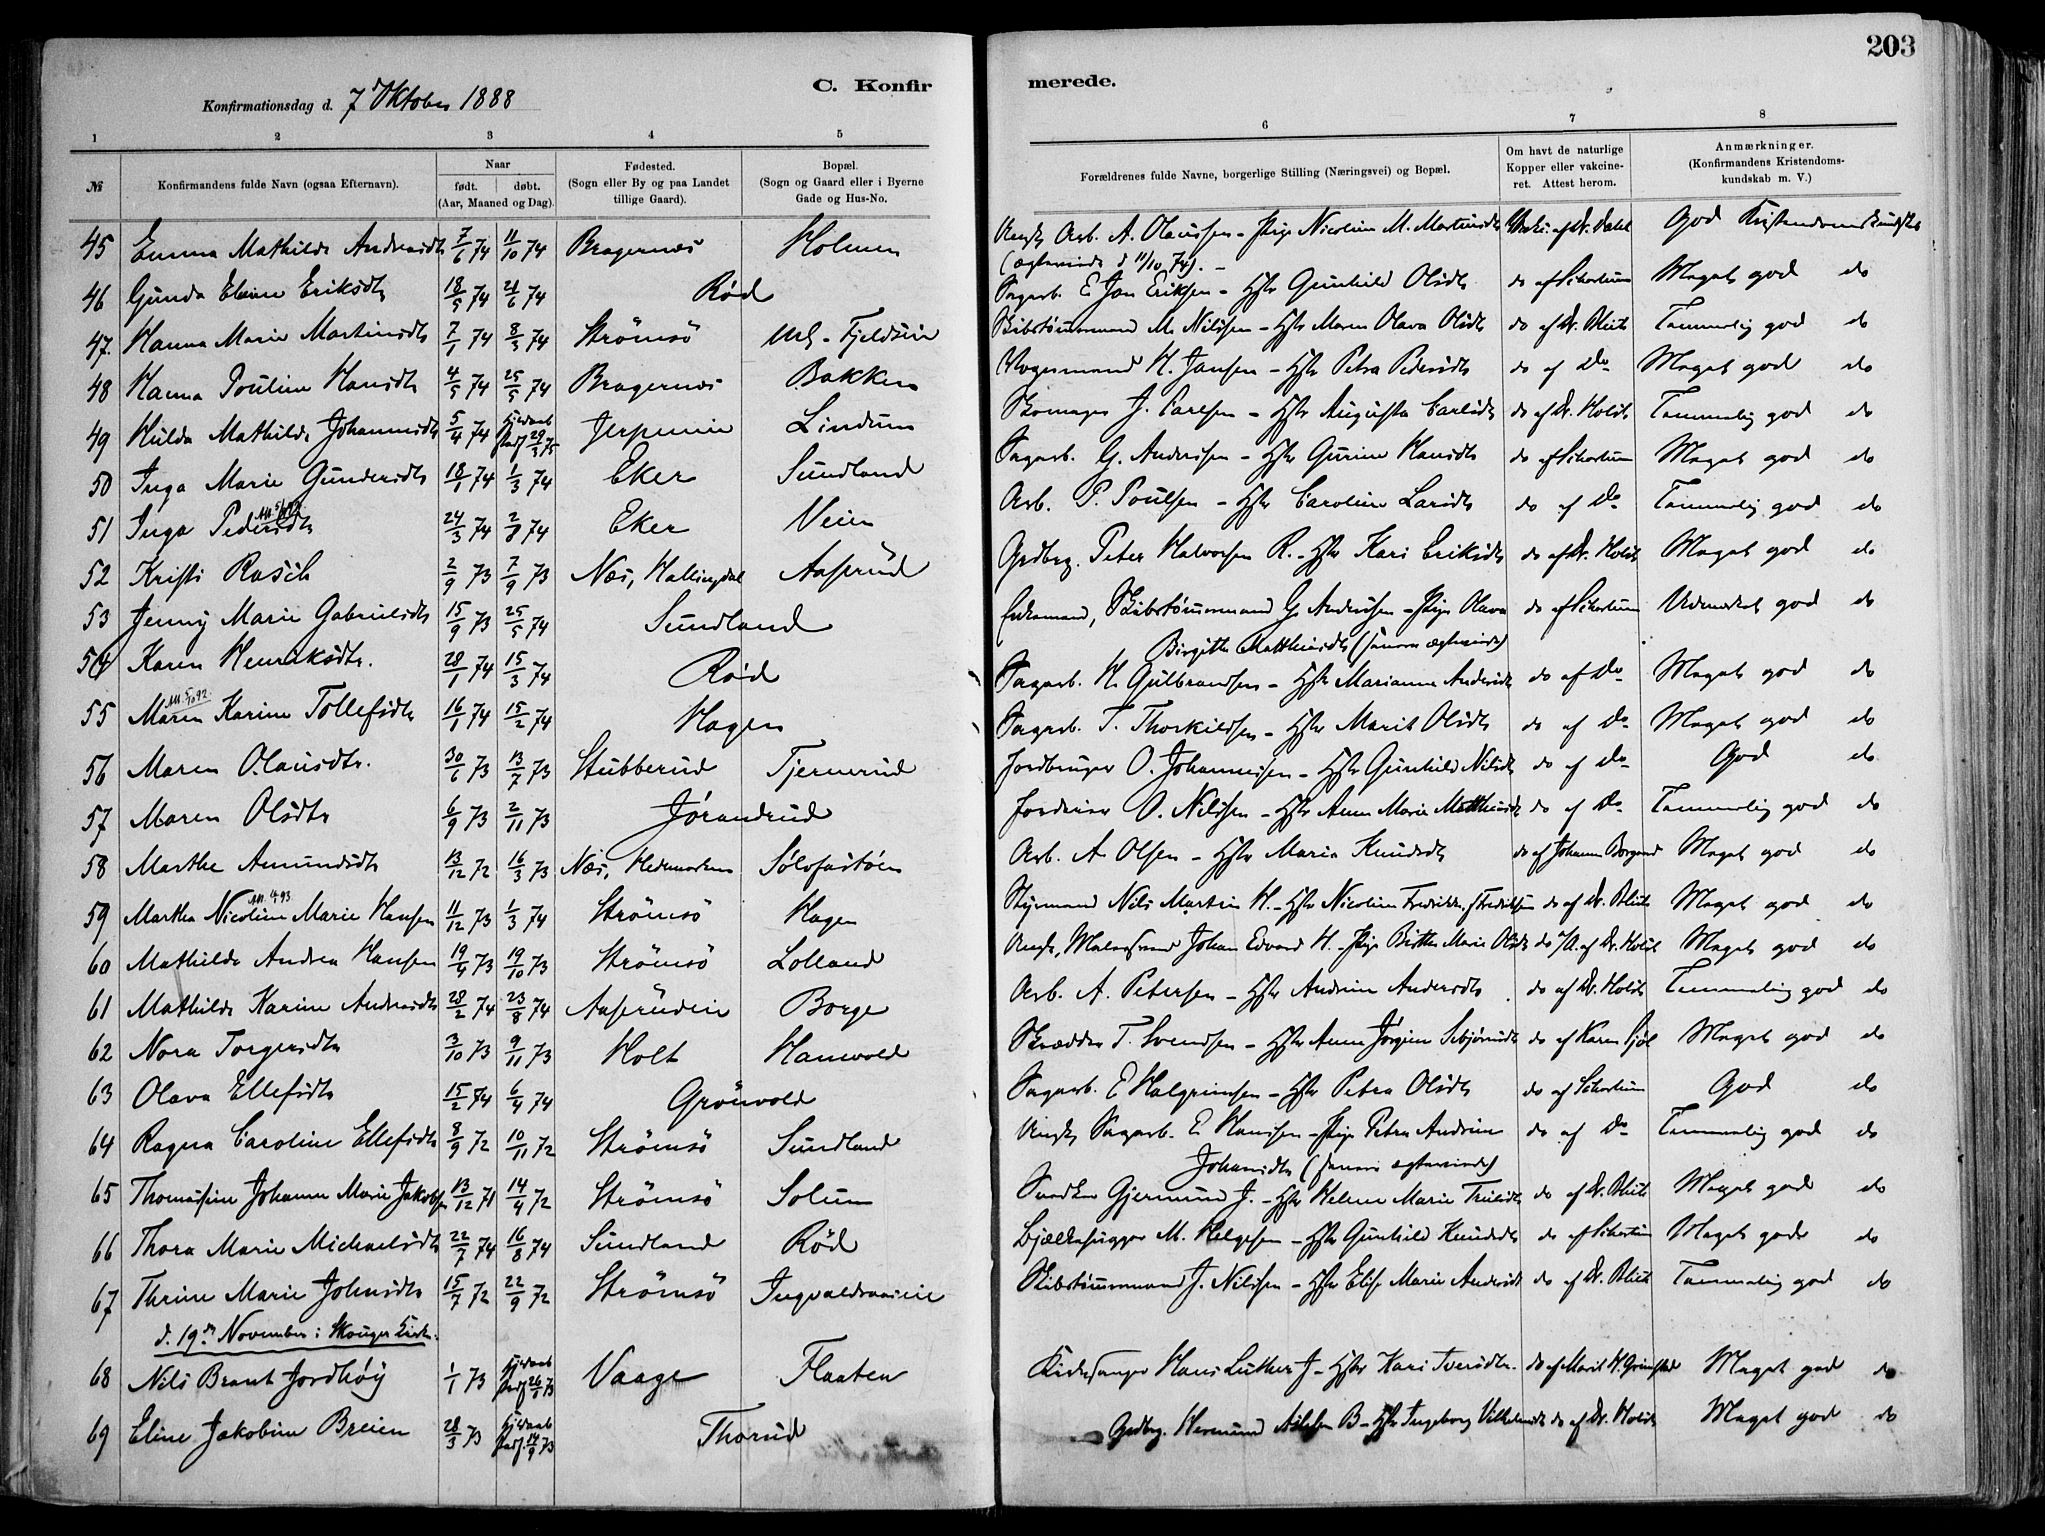 203
C. Konfir merede.
Konfirmationsdag d. 7d Oktober 1888
1 2 3 4 5 6 7 8
№ Konfirmandens fulde Navn (ogsaa Efternavn). Naar født. døbt. (Aar, Maaned og Dag). Fødested. (Sogn eller By og paa Landet tillige Gaard). Bopæl. (Sogn og Gaard eller i Byerne Gade og Hus-No. Forældrenes fulde Navne, borgerlige Stilling (Næringsvei) og Bopæl. Om havt de naturlige Kopper eller vakcineret. Attest herom. Anmærkninger. (Konfirmandens Kristendomskundskab m. V.)
45 Emma Mathilde Andreasdtr 7/6 74 11/10 74 Bragernæs Holmen Ungk. Arb. A. Olaussen - Pige Nicoline M. Martinsdtr God Kristendomskundskab
(ægteviede d 11/10 74). -
46 Gunda Eline Eriksdtr 18/5 74 21/6 74 Rød Sagarb. E Jan Eriksen - Hstr Gunhild Olsdtr do af Schortum Meget god do
47. Hanna Marie Martinsdtr 7/1 74 8/3 74 Strømsø Skibstømmermand M. Nilssen - Hstr Maren Olava Olsdtr do af Dr. Tammelig god do
48 Hanna Pouline Hansdtr 4/5 74 25/5 74 Bragernæs Bakken Vognmand H. Jansen - Hstr Petra Pedersdtr do af Do Meget god do
49 Hulda Mathilde Johannesdtr 5/4 74 hjemmedøbt 29/3 75 Lindum Skomager J. Carlsen - Hstr Augusta Carlsdtr do af Dr. Holst Tammelig god do
50 Inga Marie Gundersdtr 18/1 74 1/3 74 Eker Sundland Sagarb. G. Andersen - Hstr Gurine Hansdtr do af Schortum Meget god do
51 Inga Pedersdtr 24/3 74 2/8 74 Eker Veien Arb. P. Poulsen - Hstr Caroline Larsdtr do af Do Tammelig god do
52 Kristi Rasch 2/9 73 7/9 73 Næs, Hallingdal Aasrud Grdbrg. Peter Halvorsen R. - Hstr Kari Eriksdtr do af Dr. Holst Meget god do
53 Jenny Marie Gabrielsdtr 15/9 73 25/5 74 Sundland Enkemand, Skibstømmermand G. Andersen - Pige Olava do af Schortum Udmerket god do
Birgitte Matthiasdtr (senere ægteviede)
54 Karen Henriksdtr. 28/1 74 15/3 74 Rød Sagarb. H. Gulbrandsen - Hstr Marianne Andersdtr do af Do Meget god do
55 Maren Karine Tollefsdtr 16/1 74 15/2 74 Hagen Sagarb. T. Thorkildsen - Hstr Marit Olsdtr do af Do Meget god do
56 Maren Olausdtr. 30/6 73 13/7 73 Stubberud Tjernerud Jordbruger O. Johannesen - Hstr Gunhild Nilsdtr do af Do God do
57 Maren Olsdtr 6/9 73 2/11 73 Jørandrud O. Nilssen - Hstr Anne Marie Matthiasdtr do af Do Tammelig god do
58 Marthe Amundsdtr 13/12 72 16/3 73 Næs, Hedemarken Sølvfastøen Arb. A. Olsen - Hstr Maria Knudsdtr do af Johanne Meget god do
59 Martha Nicoline Marie Hansen 11/12 73 1/3 74 Strømsø Hagen Styrmand Nils Martin H. - Hstr Nicoline Fredrikke do af Dr. Meget god do
60 Mathilde Andrea Hansen 19/4 73 19/10 73 Strømsø Lolland Ungk. Johan Edvard H. - Pige Birthe Marie Olsdtr do af Dr. Holst Meget god do
61 Mathilde Karine Andreasdtr 28/2 74 23/8 74 Aasrudeie Borge Arb. A. Petersen - Hstr Andrine Andersdtr do af Dr. Holst Tammelig god do
62 Nora Torgersdtr 3/10 73 9/11 73 Holt Hanevold Skrædder T. Svendsen - Hstr Anne Jørgine do af Karen Meget god do
63 Olava Ellefsdtr 15/2 74 6/4 74 Grønvold Sagarb. E Halgrimsen - Hstr Petra Olsdtr do af Schortum God do
64 Ragna Caroline Ellefsdtr 8/9 72 10/11 72 Strømsø Sundland Ungk. Sagarb. E Hansen - Pige Petra Andrine do af Do Tammelig god do
Johansdtr (senere ægteviede)
65 Thomasine Johanne Marie Jakobsen 13/12 71 14/4 72 Strømsø Solum Snedker Gjermund J. - Hstr Helene Marie do af Dr. Meget god do
66 Thora Marie Michaelsdtr 22/7 74 16/8 74 Sundland Rød Bjælkehugger M. Helgesen - Hstr Gunhild Knudsdtr do af Schortum Meget god do
67 Thrine Marie Johnsdtr 15/7 72 22/9 72 Strømsø Skibstømmermand J. Nilssen - Hstr Elise Marie Andersdtr do af Dr. Tammelig god do
d. 19de November i Skouger Kirke.
68 Nils Brant Jordhøy 1/1 73 Vaage Flaaten Kirkesanger Hans Luther J - Hstr Kari Iversdtr. do af Marit Meget god do
69 Eline Jakobine Breien 28/3 73 14/9 73 Thorud Grdbrg. Hermund B - Hstr Ingeborg do af Dr. Holst Meget god do